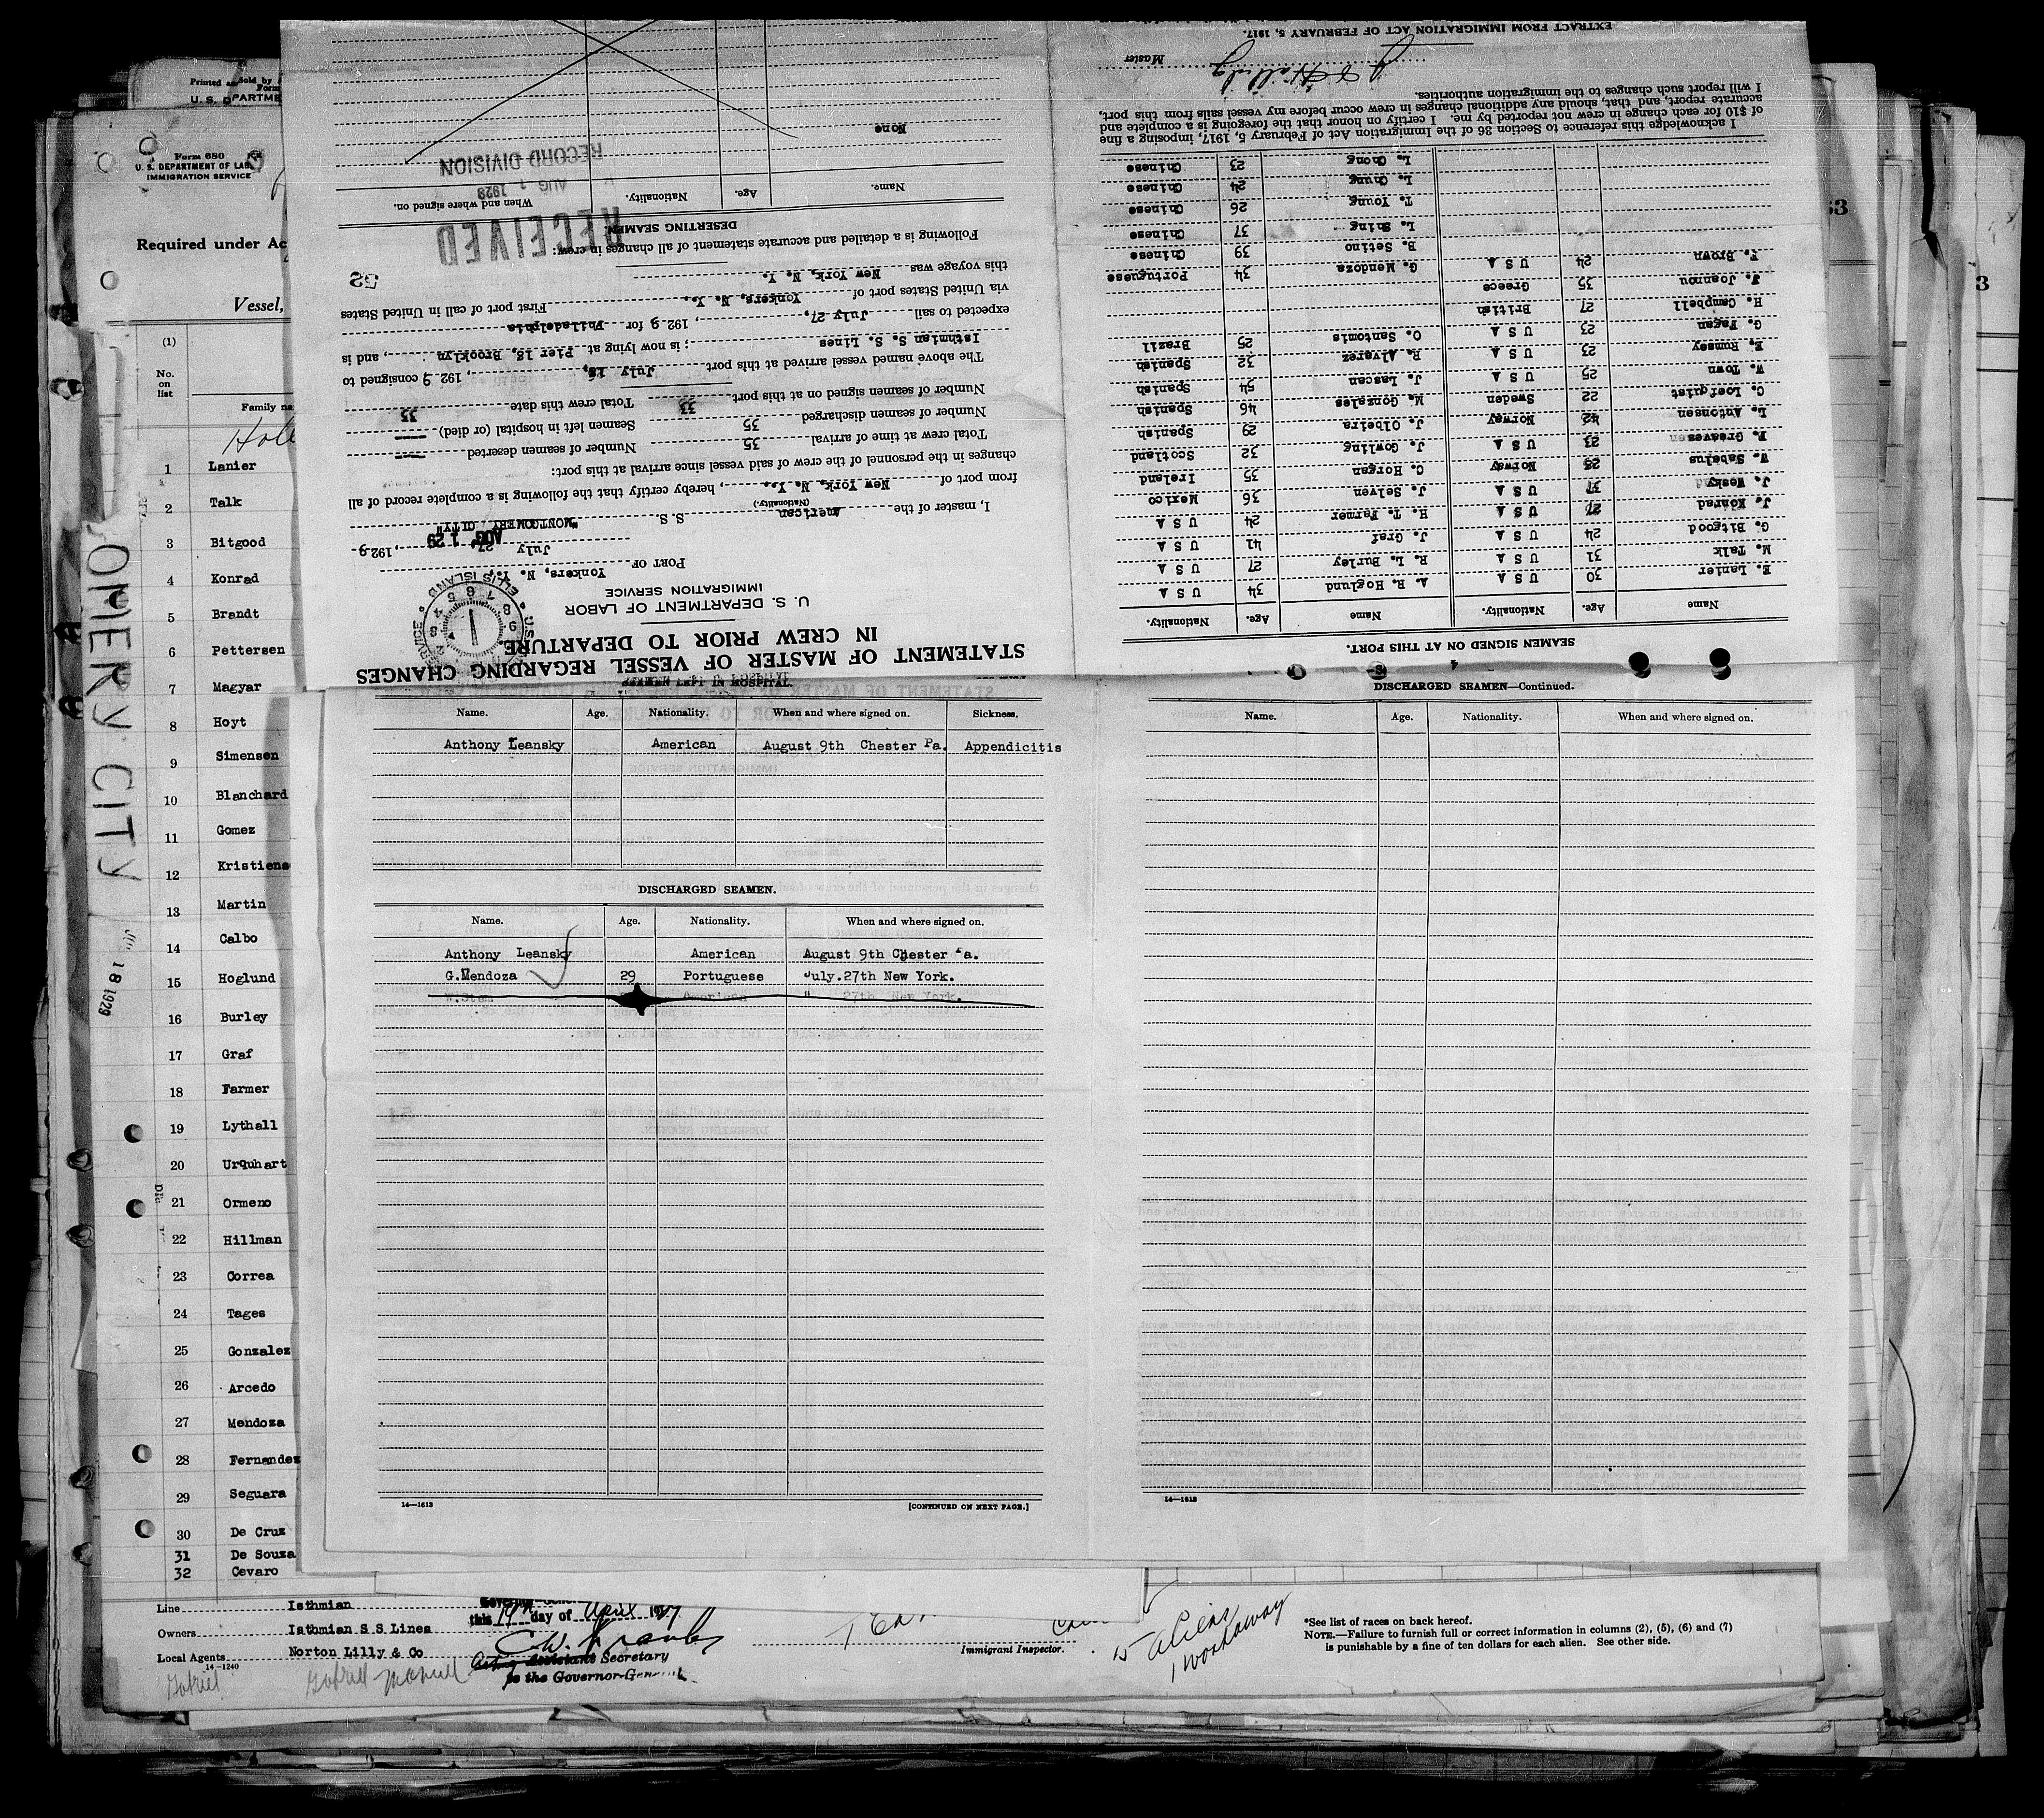 Form 680
U. S. DEPARTMENT OF LABOR
IMMIGRATION SERVICE
Required under Ac
Vessel,
(1)
No.
on
list
Family na
OMERY CITY
1 Lanier
2 Talk
3 Bitgood
4 Konrad
5 Brandt
6 Pettersen
7 Magyar
8 Hoyt
9 Simensen
10 Blanchard
11 Gomez
12 Kristiens
13 Martin
14 Calbo
15 Hoglund
16 Burley
17 Graf
18 Farmer
19 Lythall
20 Urquhart
21 Ormeno
22 Hillman
23 Correa
24 Tages
25 Gonzalez
26 Arcedo
27 Mendoza
28 Fernandez
29 Seguara
30 De Cruz
31 De Souza
32 Cevaro
Line Isthmian
Owners Isthmian S S Lines
Local Agents Norton Lilly & Co
14-1240
this 19th day of April
Secretary
to the Governor-General.
Immigrant Inspector.
15 Aliens
1 workaway
*See list of races on back hereof.
NOTE.—Failure to furnish full or correct information in columns (2), (5), (6) and (7)
is punishable by a fine of ten dollars for each alien. See other side.
STATEMENT OF MASTER OF VESSEL REGARDING CHANGES
IN CREW PRIOR TO DEPARTURE
U. S. DEPARTMENT OF LABOR
IMMIGRATION SERVICE
PORT OF Yonkers, N. Y.,
July 27, 1929
AUG 1 29
I, master of the American S. S. "MONTGOMERY CITY"
(Nationality.)
from port of New York, N. Y., hereby certify that the following is a complete record of all
changes in the personnel of the crew of said vessel since arrival at this port:
Total crew at time of arrival 35 Number of seamen deserted
Number of seamen discharged 35 Seamen left in hospital (or died)
Number of seamen signed on at this port 33 Total crew this date 33
The above named vessel arrived at this port July 15, 1929 consigned to
Isthmian S. S. Lines; is now lying at Pier 16, Brooklyn, and is
expected to sail July 27, 1929 for Philadelphia
via United States port of Yonkers, N. Y., First port of call in United States
this voyage was New York, N. Y.
Following is a detailed and accurate statement of all changes in crew:
DESERTING SEAMEN.
RECEIVED
AUG 1 1929
RECORD DIVISION
Name. Age. Nationality. When and where signed on.
None
SEAMEN SIGNED ON AT THIS PORT.
Name Age. Nationality. Name Age. Nationality.
E. Lanier 30 U S A A. R. Hoglund 34 U S A
M. Talk 31 U S A R. L. Burley 27 U S A
G. Bitgood 24 U S A J. Graf 41 U S A
J. Konrad 27 U S A H. T. Farmer 24 U S A
J. Wesky 37 U S A J. Selven 36 Mexico
W. Sabelus 25 Norway C. Horgan 35 Ireland
F. Greaves 23 U S A J. Gowling 32 Scotland
L. Antonsen 42 Norway J. Olbeira 29 Spanish
C. Loefquist 22 Sweden M. Gonzales 46 Spanish
W. Town 25 U S A J. Lascan 54 Spanish
E. Rumsey 23 U S A R. Alverez 32 Spanish
G. Fagan 23 U S A O. Santomis 25 Brazil
H. Campbell 27 British
J. Joannou 35 Greece
F. Brown 24 U S A G. Mendoza 34 Portuguese
B. Setino 39 Chinese
L. Shing 37 Chinese
T. Young 26 Chinese
L. Chung 24 Chinese
L. Chong 23 Chinese
I acknowledge this reference to Section 36 of the Immigration Act of February 5, 1917, imposing a fine
of $10 for each change in crew not reported by me. I certify on honor that the foregoing is a complete and
accurate report, and that, should any additional changes in crew occur before my vessel sails from this port,
I will report such changes to the immigration authorities.
Master
EXTRACT FROM IMMIGRATION ACT OF FEBRUARY 5, 1917.
Name. Age. Nationality. When and where signed on. Sickness.
Anthony Leansky American August 9th Chester Pa. Appendicitis
DISCHARGED SEAMEN.
Name. Age. Nationality. When and where signed on.
Anthony Leansky American August 9th Chester Pa.
G. Mendoza 29 Portuguese July.27th New York.
American " 27th New York.
14—1613 [CONTINUED ON NEXT PAGE.]
DISCHARGED SEAMEN—Continued.
Name. Age. Nationality. When and where signed on.
14—1613